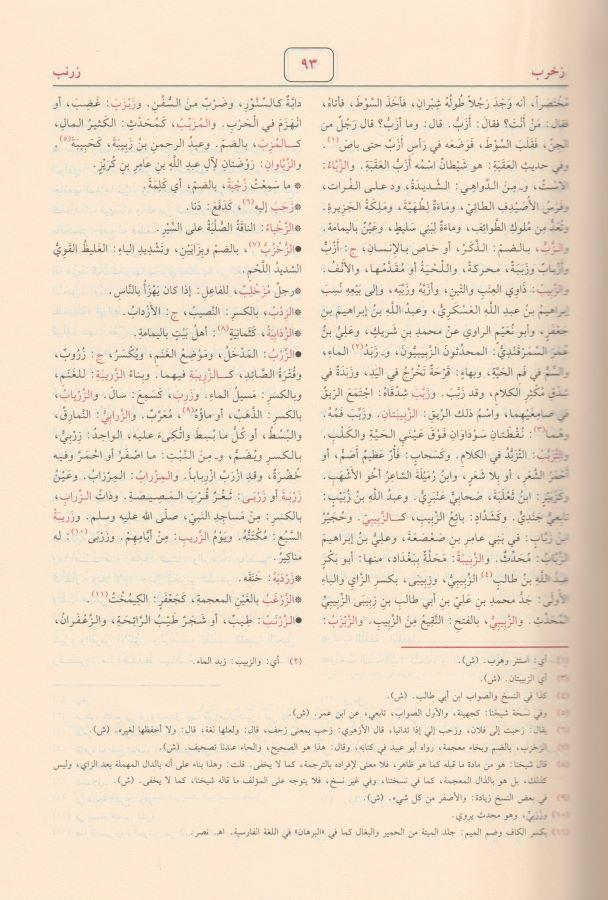 زخرب
٩٣
زرنب
مُخْتَصَراً، أنه وَجَدَ رَجُلاً طُولُهُ شِبْرانِ، فأَخَذَ السَّوْطَ، فأتاهُ،
فقال: مَنْ أنْتَ؟ فقالَ: أزَبُّ. قال: وما أزَبُّ؟ قال: رَجُلٌ من
الجِنِّ، فَقَلَبَ السَّوْطَ، فَوَضَعَه في رَأْس أَزَبَّ حتى باصَ(١).
وفي حديثِ العَقَبَةِ: هو شَيْطانٌ اسْمُه أزَبُّ العَقَبَةِ. والزَّبَّاءُ:
الاسْتُ، وـ مِنَ الدَّواهِي: الشَّديدَةُ، ود على الفُراتِ،
وفَرَسُ الأُصَيْدِفِ الطائِيِّ، وماءَةٌ لِطُهَيَّةَ، ومَلِكَةُ الجَزيرةِ،
وتُعَدُّ مِن مُلوكِ الطَّوائِفِ، وماءَةٌ لِبَنِي سَليطٍ، وعَيْنٌ باليمامةِ.
والزُّبُّ، بالضمِّ: الذَّكَرُ، أو خاص بالإِنسانِ، ج: أزُبٌّ
وأَزْبابٌ وزَبَبَةٌ، محركةً، واللِّحْيَةُ أو مُقَدَّمُها، والأَنْفُ.
والزَّبيبُ: ذَاوِي العِنَبِ والتِّينِ، وأزَبَّهُ وزَبَّبَه، وإلى بَيْعِه نُسِبَ
إبراهيمُ بنُ عبدِ اللَّهِ العَسْكَرِيُّ، وعبدُ اللَّهِ بنُ إبراهيمَ بنِ
جَعْفَرٍ، وأبو نُعَيْمٍ الراوِي عنْ محمدِ بنِ شَرِيكٍ، وعَلِيُّ بنُ
عُمَرَ السَّمَرْقَنْدِيُّ: المحدِّثونَ الزَّبيبِيُّونَ، وـ زَبَدُ(٢) الماءِ،
والسَّمُّ في فَمِ الحَيَّةِ، وبهاءٍ: قَرْحَةٌ تَخْرُجُ في اليَدِ، وزَبَدَةٌ في
شِدْقِ مُكْثِرِ الكلامِ، وقد زَبَّبَ. وزَبَّبَ شِدْقاهُ: اجْتَمَعَ الرِّيقُ
في صامِغَيْهِما، واسْمُ ذلك الرِّيقِ: الزَّبيبَتانِ. وزَبَّبَ فَمُهُ.
وهُما(٣): نُقْطَتانِ سَوْداوَانِ فَوْقَ عَيْنَيِ الحَيَّةِ والكَلْبِ.
والتَّزَبُّبُ: التَّزَبُّدُ في الكلامِ. وكسَحابٍ: فَأْرٌ عظيمٌ أصَمُّ، أو
أحْمَرُ الشَّعَرِ، أو بِلا شَعَرٍ، وابنُ رُمَيْلَةَ الشاعِرُ أخو الأَشْهَبِ.
وكزُبَيْرٍ: ابنُ ثَعْلَبَةَ، صَحابِيٌّ عَنْبَرِيٌّ. وعبدُ اللَّهِ بنُ زُبَيْبٍ:
تابِعِيٌّ جَنَدِيٌّ. وكَشَدَّادٍ: بائِعُ الزَّبيبِ، كـالزَّبيبِيِّ. وحُجَيْرُ
ابنُ زَبَّابٍ: في بَنِي عامِرِ بنِ صَعْصَعَةَ، وعليُّ بنُ إبراهيمَ
الزَّبَّابُ: مُحَدِّثٌ. والزَّبيبَةُ: مَحَلَّةٌ بِبَغْدَادَ، منها: أبو بَكْرٍ
عبدُ اللَّهِ بنُ طالبٍ(٤) الزَّبيبِيُّ، وزِبِيبَى، بكسرِ الزاي والباءِ
الأُولَى: جَدُّ محمدِ بنِ عَلِيِّ بنِ أبي طالِبِ بنِ زِبيبَى الزِّبيبِيِّ
المُحَدِّثِ. والزَّبيبِيُّ، بالفتحِ: النَّقيعُ مِنَ الزَّبيبِ. والزَّبْزَبُ:
دابَّةٌ كالسِّنَّوْرِ، وضَرْبٌ مِنَ السُّفُنِ. وزَبْزَبَ: غَضِبَ، أو
انْهَزَمَ في الحَرْبِ. والمُزَبِّبُ، كَمُحَدِّثٍ: الكَثيرُ المالِ،
كـالمُزِبِّ، بالضمِّ. وعبدُ الرحمنِ بنُ زَبِيبَةَ، كَحَبِيبَةَ(٥)
والزَّبَاوانِ: رَوْضَتانِ لآلِ عبدِ اللَّهِ بنِ عامِرِ بنِ كُرَيْزٍ.
* ما سَمِعْتُ زُجْبَةً، بالضمِّ، أي كَلِمَةً.
* زَحَبَ إليه(٦)، كَدَفَعَ: دَنا.
* الزَّخْباءُ: الناقةُ الصُّلْبَةُ على السَّيْرِ.
● الزُّخْزُبُّ(٧)، بالضمِّ وبِزايَيْنِ، وتَشْديدِ الباءِ: الغَليظُ القَوِيُّ
الشديدُ اللَّحْمِ.
* رجلٌ مُزَخْلِبٌ، للفاعِلِ: إذا كان يَهْزَأُ بالنَّاسِ.
* الزِّدْبُ، بالكسرِ: النَّصيبُ، ج: الأَزْدابُ.
* الزَّذابِيَةُ، كَثَمانِيَةٍ(٨): أهلُ بَيْتٍ باليمامةِ.
● الزَّرْبُ: المَدْخَلُ، ومَوْضِعُ الغَنَمِ، ويُكْسَرُ، ج: زُرُوبٌ،
وقُتْرَةُ الصَّائِدِ، كـالزَّرِيبَةِ فيهما. وبِناءُ الزَّرِيبَةِ: للغَنَمِ،
وبالكسرِ: مَسيلُ الماءِ. وزَرِبَ، كَسَمِعَ: سالَ. والزِّرْيابُ،
بالكسرِ: الذَّهَبُ، أو ماؤُهُ(٩)، مُعَرَّبٌ. والزَّرابِيُّ: النَّمارِقُ،
والبُسُطُ، أو كُلُّ ما بُسِطَ واتُّكِىءَ عليه، الواحِدُ: زِرْبِيٌّ،
بالكسرِ ويُضَمُّ، وـ مِنَ النَّبْتِ: ما اصْفَرَّ أو احْمَرَّ وفيه
خُضْرَةٌ، وقدِ ازْرَبَّ ازْرِباباً. والمِزْرابُ: المِرْزابُ. وعَيْنُ
زَرْبَةَ أو زَرْبَى: ثَغْرٌ قُرْبَ المَصيصَةِ. وذاتُ الزِّرابِ،
بالكسرِ: مِنْ مَساجِدِ النَّبيِّ، صلَّى الله عليه وسلم. وزَرِيبَةُ
السَّبُعِ: مُكْتَنُّهُ. ويَوْمُ الزَّرِيبِ: مِنْ أيامِهِمْ. وزَرْبِيٌّ(١٠): له
مناكيرُ.
* زَرْدَبَهُ: خَنَقَه.
* الزَّرْغَبُ بالغَيْنِ المعجمةِ، كَجَعْفَرٍ: الكيمُخْتُ(١١).
● الزَّرْنَبُ: طِيبٌ، أو شَجَرٌ طَيِّبُ الرَّائِحَةِ، والزَّعْفَرانُ،
(١) أي: استتر وهرب. (ش).
(٢) أي: والزبيب: زبد الماء.
(٣) أي الزبيبتان. (ش).
(٤) كذا في النسخ والصواب ابن أبي طالب. (ش).
(٥) وفي نسخة شيخنا: كجهينة، والأول الصواب، تابعي، عن ابن عمر. (ش).
(٦) يقال: زحبت إلى فلان، وزحب إلي إذا تدانيا، قال الأزهري: زحب بمعنى زحف، قال: ولعلها لغة، قال: ولا أحفظها لغيره. (ش).
(٧) الزخرب، بالضم وبخاء معجمة، رواه أبو عبيد في كتابه، وقال: هذا هو الصحيح، والحاء عندنا تصحيف. (ش).
(٨) قال شيخنا: هو من مادة ما قبله كما هو ظاهر، فلا معنى لإفراده بالترجمة، كما لا يخفى. قلت: وهذا بناء على أنه بالدال المهملة بعد الزاي، وليس
كذلك، بل هو بالذال المعجمة، كما في نسختنا، وفي غير نسخ، فلا يتوجه على المؤلف ما قاله شيخنا، كما لا يخفى. (ش).
(٩) في بعض النسخ زيادة: والأصفر من كل شيء. (ش).
(١٠) وزَرْبِيٌّ، وهو محدث يروي.
(١١) بكسر الكاف وضم الميم: جلد الميتة من الحمير والبغال كما في «البرهان» في اللغة الفارسية. اهـ. نصر.